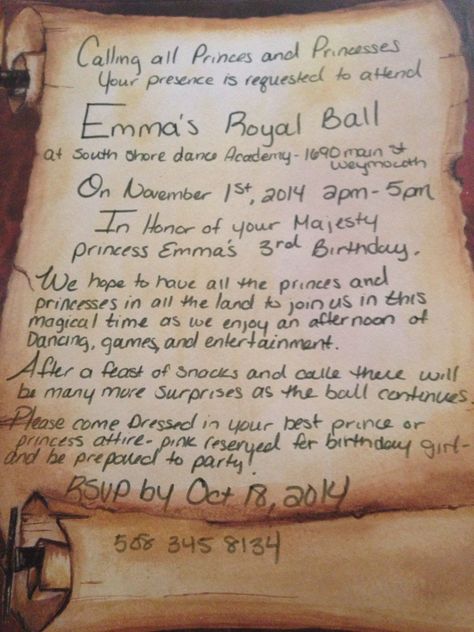 Calling all Princes and Princesses
Your presence is requested to attend
Emma's Royal Ball
at South Shore dance Academy - 1690 main st
Weymouth
On November 1st, 2014 2pm - 5pm
In Honor of your Majesty
princess Emma's 3rd Birthday.
We hope to have all the princes and
princesses in all the land to join us in this
magical time as we enjoy an afternoon of
Dancing, games, and entertainment.
After a feast of snacks and cake there will
be many more surprises as the ball continues.
Please come Dressed in your best prince or
princess attire - pink reserved for birthday girl -
and be prepared to party!
RSVP by Oct 18, 2014
508 345 8134